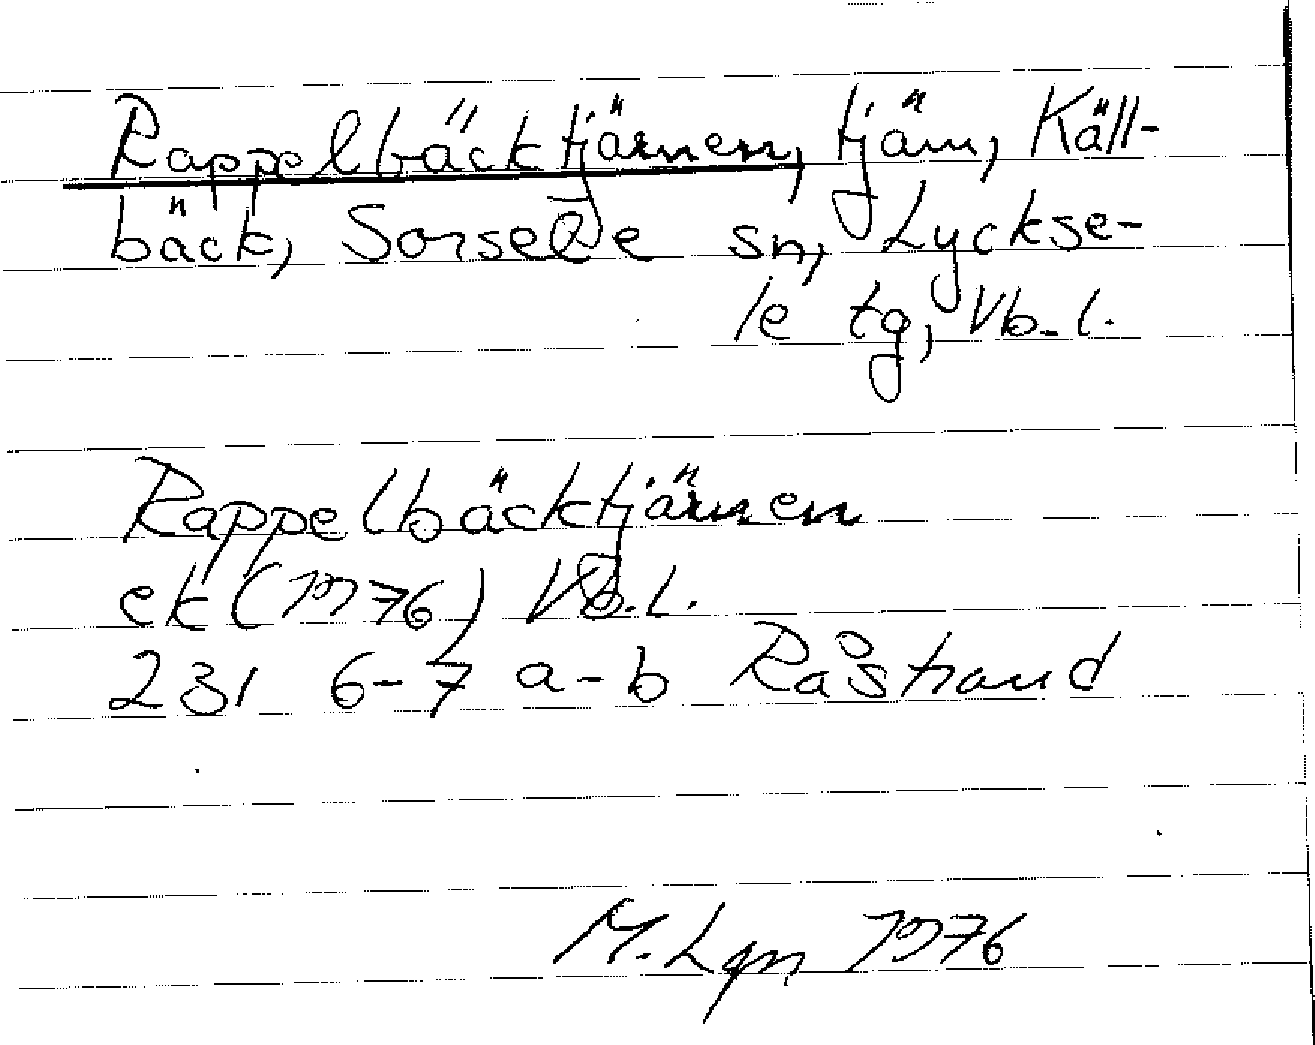 Rappelbäcktjärnen, tjärn, Käll-
bäck, Sorsele sn, Lyckse-
le tg, Vb. l.
Rappelbäcktjärnen
ek (1976) Vb. l.
231 6-7 a-b Råstrand
M. Lgn 1976